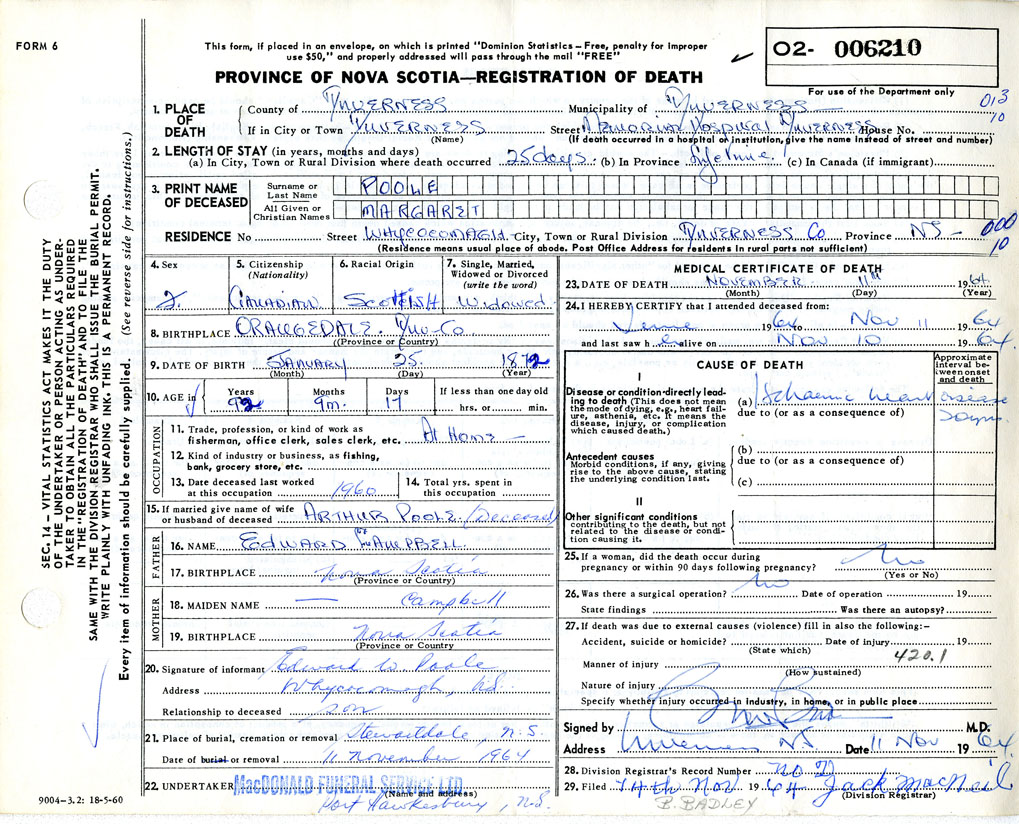 FORM 6
This form, if placed in an envelope, on which is printed "Dominion Statistics – Free, penalty for improper
use $50," and properly addressed will pass through the mail "FREE"
O2- 006210
PROVINCE OF NOVA SCOTIA—REGISTRATION OF DEATH
For use of the Department only
013
10
1. PLACE OF DEATH
County of INVERNESS Municipality of INVERNESS
If in City or Town INVERNESS Street MEMORIAL HOSPITAL INVERNESS House No.
(Name) (If death occurred in a hospital or institution, give the name instead of street and number)
2. LENGTH OF STAY (in years, months and days)
(a) In City, Town or Rural Division where death occurred 25 days (b) In Province Lifetime (c) In Canada (if immigrant)
3. PRINT NAME OF DECEASED
Surname or Last Name POOLE
All Given or Christian Names MARGARET
RESIDENCE No Street WHYCOCOMAGH City, Town or Rural Division INVERNESS Co Province NS –
000
10
(Residence means usual place of abode. Post Office Address for residents in rural parts not sufficient)
4. Sex
5. Citizenship (Nationality) CANADIAN
6. Racial Origin SCOTTISH
7. Single, Married, Widowed or Divorced (write the word) WIDOWED
8. BIRTHPLACE ORANGEDALE. INV. Co
(Province or Country)
9. DATE OF BIRTH JANUARY 25 1872
(Month) (Day) (Year)
10. AGE in
Years 92
Months 9m.
Days 17
If less than one day old
hrs. or min.
OCCUPATION
11. Trade, profession, or kind of work as
fisherman, office clerk, sales clerk, etc. At Home –
12. Kind of industry or business, as fishing,
bank, grocery store, etc.
13. Date deceased last worked
at this occupation 1960
14. Total yrs. spent in
this occupation
15. If married give name of wife
or husband of deceased ARTHUR POOLE (Deceased)
FATHER
16. NAME EDWARD CAMPBELL
17. BIRTHPLACE Nova Scotia
(Province or Country)
MOTHER
18. MAIDEN NAME — Campbell
19. BIRTHPLACE Nova Scotia
(Province or Country)
20. Signature of informant Edward W Poole
Address Whycocomagh, N.S.
Relationship to deceased son
21. Place of burial, cremation or removal Stewartdale, N.S.
Date of burial or removal 11 November 1964
22. UNDERTAKER MacDONALD FUNERAL SERVICE LTD.
(Name and address)
Port Hawkesbury, N.S.
9004–3.2: 18-5-60
MEDICAL CERTIFICATE OF DEATH
23. DATE OF DEATH NOVEMBER 11th 1964
(Month) (Day) (Year)
24. I HEREBY CERTIFY that I attended deceased from:
June 1964 to Nov 11 1964
and last saw her alive on Nov 10 1964
CAUSE OF DEATH
Approximate interval between onset and death
I
Disease or condition directly leading to death (This does not mean the mode of dying, e.g., heart failure, asthenia, etc. It means the disease, injury, or complication which caused death.)
(a) Ischaemic heart disease
Days
due to (or as a consequence of)
Antecedent causes
Morbid conditions, if any, giving rise to the above cause, stating the underlying condition last.
(b)
due to (or as a consequence of)
(c)
II
Other significant conditions
contributing to the death, but not related to the disease or condition causing it.
25. If a woman, did the death occur during
pregnancy or within 90 days following pregnancy? No
(Yes or No)
26. Was there a surgical operation? No Date of operation 19
State findings Was there an autopsy?
27. If death was due to external causes (violence) fill in also the following:–
Accident, suicide or homicide? Date of injury 19
(State which)
420.1
Manner of injury
(How sustained)
Nature of injury
Specify whether injury occurred in industry, in home, or in public place
Signed by M.D.
Address Inverness NS Date 11 Nov 1964
28. Division Registrar's Record Number No. 72
29. Filed 14th Nov 1964 Jack MacNeil
(Division Registrar)
B. BADLEY
SEC. 14 – VITAL STATISTICS ACT MAKES IT THE DUTY
OF THE UNDERTAKER OR PERSON ACTING AS UNDER-
TAKER TO OBTAIN ALL THE PARTICULARS REQUIRED
IN THE "REGISTRATION OF DEATH" AND TO FILE THE
SAME WITH THE DIVISION REGISTRAR WHO SHALL ISSUE THE BURIAL PERMIT.
WRITE PLAINLY WITH UNFADING INK. THIS IS A PERMANENT RECORD.
Every item of information should be carefully supplied. (See reverse side for instructions.)